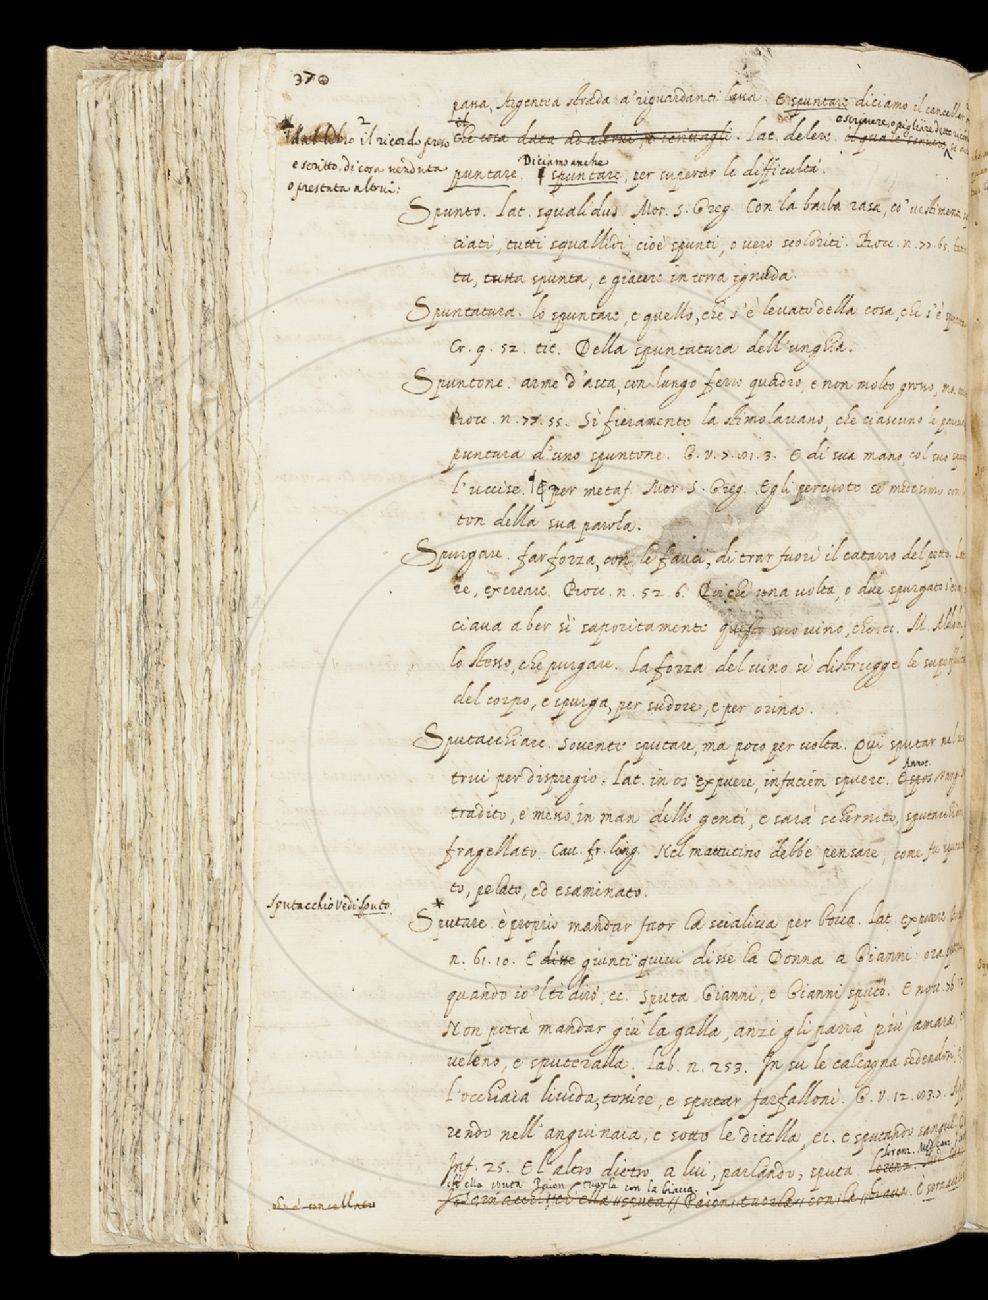 370
passa, Argentea strada a' riguardanti lassa. E spuntare diciamo il cancellar
o scrivere, o pigliare
che cosa data ad altrui, Lat. delere.
al libro il ricordo preso
e scritto, di cosa venduta
o prestata altrui:
Diciamo anche
puntare. spuntare, per superar le difficultà.
Spunto. Lat. squalidus. Mor. S. Greg. Con la barba rasa, co' vestimenti
ciati, tutti squallidi, cioè spunti, o vero scoloriti. Bocc. n. 77. 65.
ta, tutta spunta, e giacere in terra ignuda.
Spuntatura. lo spuntare, e quello, che s' è levato della cosa, che s' è
Cr. 9. 52. tit. Della spuntatura dell' unghia.
Spuntone. arme d' asta, con lungo ferro quadro, e non molto grosso, ma
Bocc. n. 77. 55. Sì fieramente la stimolavano, che ciascuno le pareva
puntura d' uno spuntone. G. V. 7. 101. 3. E di sua mano col suo
l' uccise. E per metaf. Mor. S. Greg. Egli percuote se medesimo con
ton della sua parola.
Spurgare. far forza, con le fauci, di trar fuori il catarro del petto. Lat.
re, excreare. Bocc. n. 52. 6. Poiché una volta, o due spurgato s' era
ciava a ber sì saporitamente questo suo vino, che ec. M. Aldobr.
lo stesso, che purgare. La forza del vino sì distrugge le superfluità
del corpo, e spurga, per sudore, e per orina.
Sputacchiare. sovente sputare, ma poco per volta. Qui sputar nel
Annot.
trui per dispregio. Lat. in os expuere, in faciem spuere.
tradito, e messo in man delle genti, e sarà schernito, sputacchiato
fragellato. Cav. fr. ling. Nel mattutino debbe pensare, come fu
to, pelato, ed esaminato.
Sputacchio vedi sputo.
Sputare. è proprio mandar fuor la scialiva per bocca. Lat. expuere
n. 61. 10. E disse giunti quivi disse la Donna a Gianni: ora
quando io 'l ti dirò, ec. Sputa Gianni, e Gianni sputò. E nov. 76
Non potrà mandar giù la galla, anzi gli parrà più amara,
veleno, e sputeralla. Lab. n. 253. In su le calcagna sedendosi,
l' occhiaia livida, tossire, e sputar farfalloni. G. V. 12. 83.
rendo nell' anguinaia, e sotto le ditella, ec. e sputando sangue,
Inf. 25. E l' altro dietro a lui, parlando, sputa.
Lorenz. Med. canz.
Ed ella sputa Paion tuorla con la biacca.
ed ella sputa Paion tuorla con la biacca. E